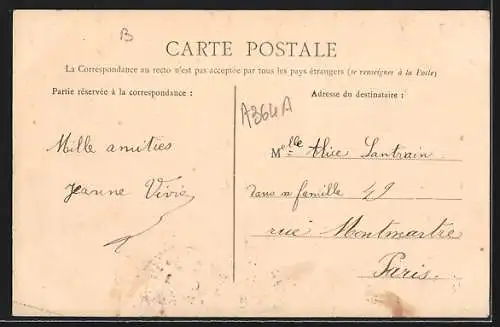 B
CARTE POSTALE
La Correspondance au recto n'est pas acceptée par tous les pays étrangers (se renseigner à la Poste)
Partie réservée à la correspondance :
Adresse du destinataire :
A364A
Mille amitiés
Jeanne Vivis
Melle Alise Lantrain
dans sa famille 49
rue Montmartre
Paris.